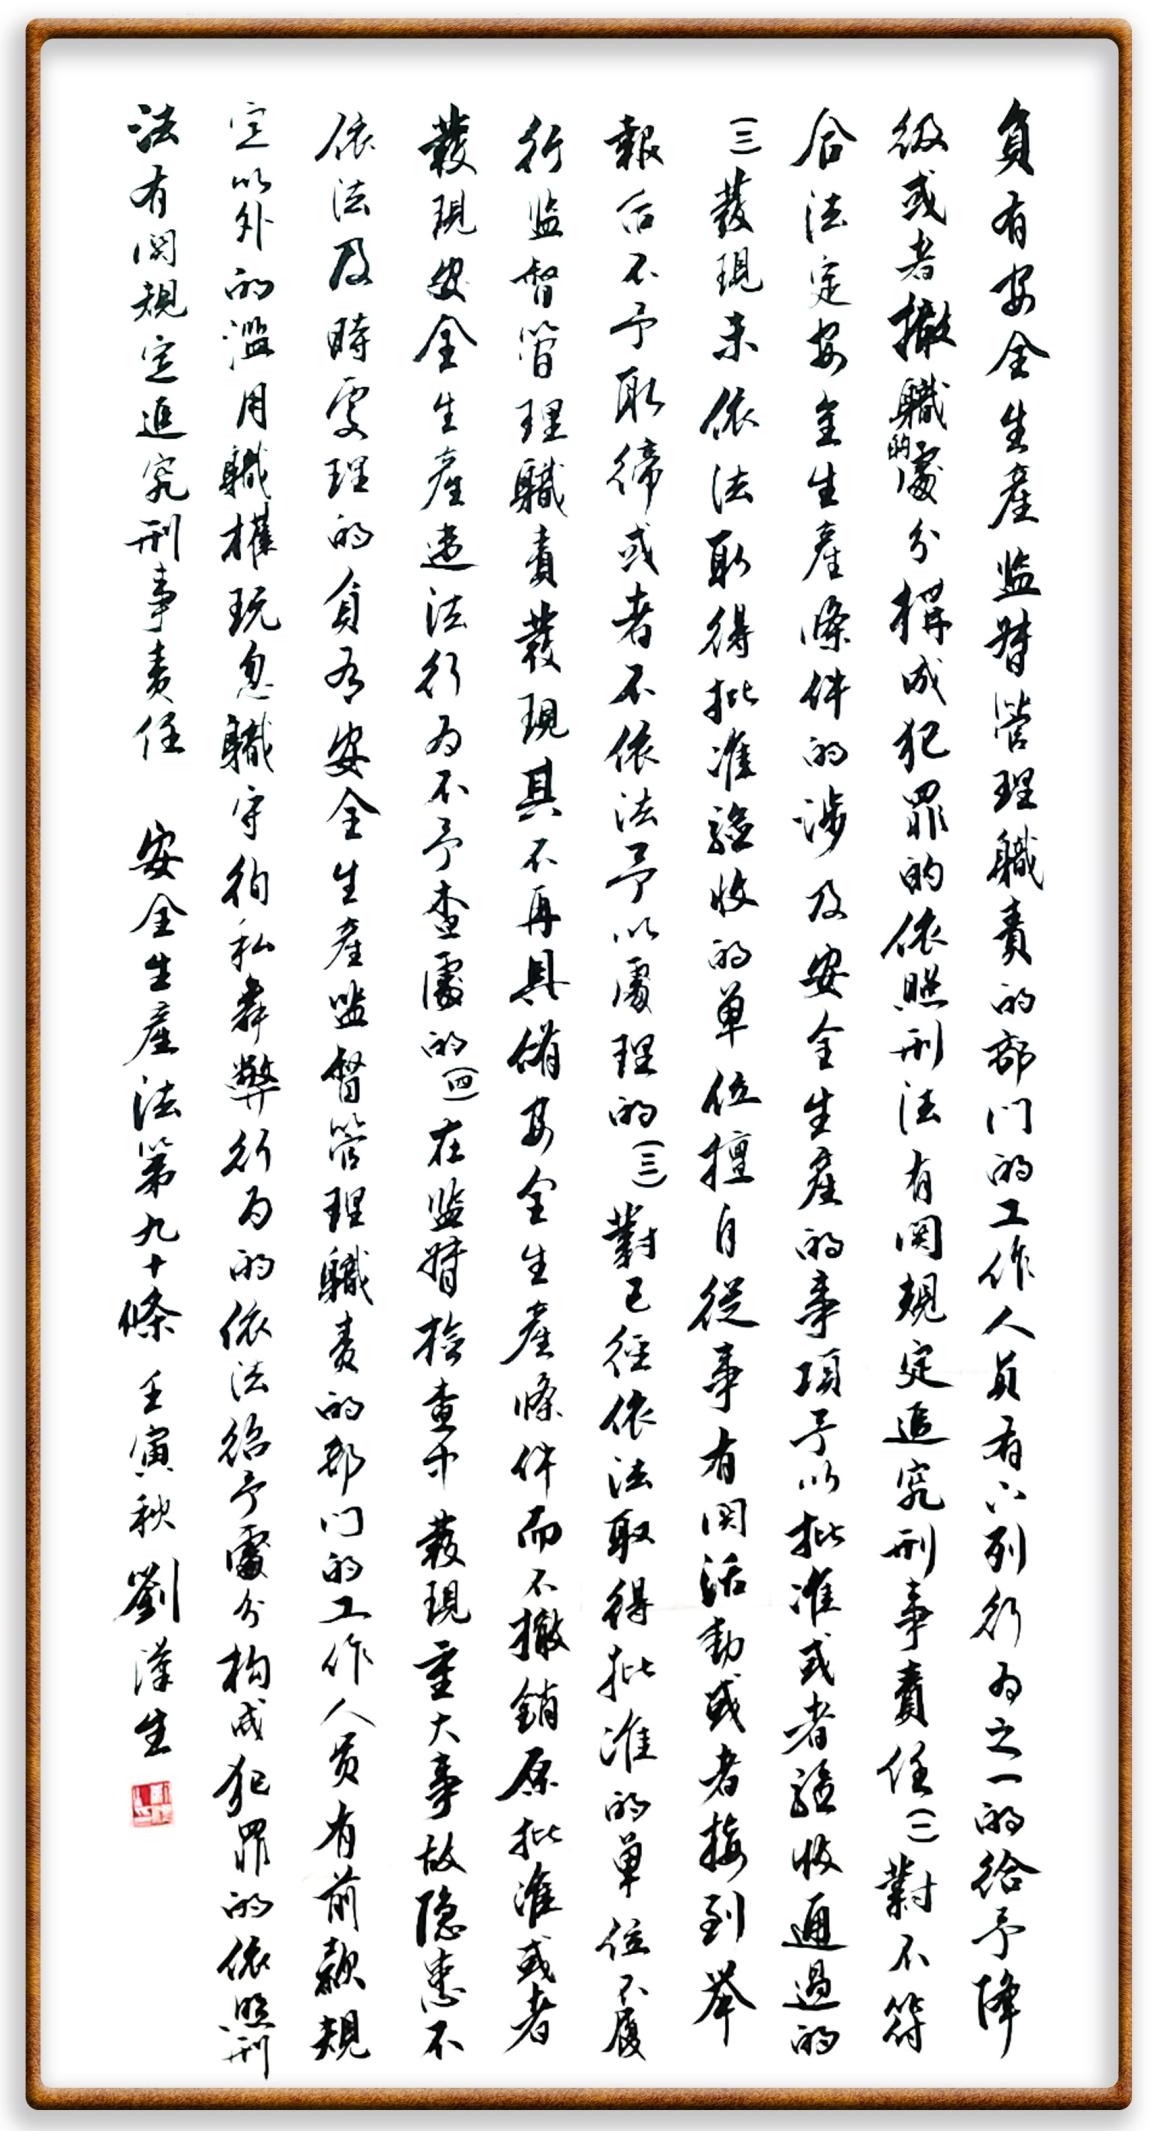 負有安全生產监督管理職責的部门的工作人员有下列行为之一的给予降
级或者撤職的處分構成犯罪的依照刑法有関規定追究刑事責任(一)對不符
合法定安全生產條件的涉及安全生産的事項予以批准或者驗收通過的
(二)發現未依法取得批准驗收的单位擅自從事有関活動或者接到举
報后不予取缔或者不依法予以處理的(三)對已經依法取得批准的单位不履
行监督管理職責發現其不再具備安全生產條件而不撤銷原批准或者
發現安全生產违法行为不予查處的(四)在监督檢查中發現重大事故隐患不
依法及時處理的負有安全生產监督管理職責的部门的工作人员有前款規
定以外的濫用職權玩忽職守徇私舞弊行为的依法給予處分构成犯罪的依照刑
法有関規定追究刑事責任 安全生產法第九十條 壬寅秋 劉漢生